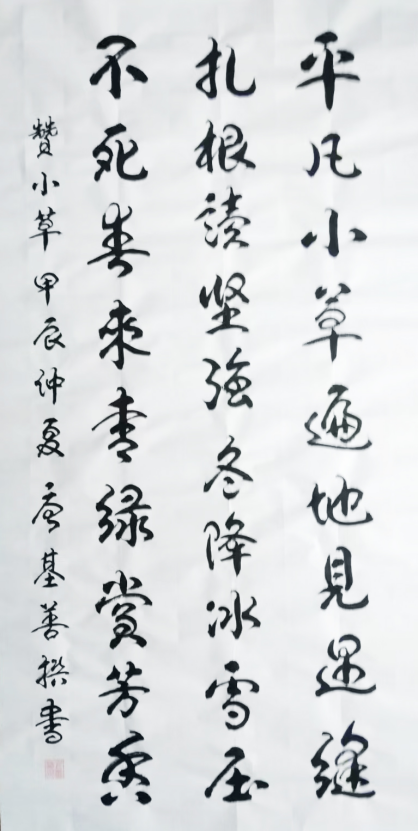 平凡小草遍地見遇縫
扎根讀坚強冬降冰雪压
不死春來青綠賞芳香
贊小草甲辰仲夏唐基善撰書